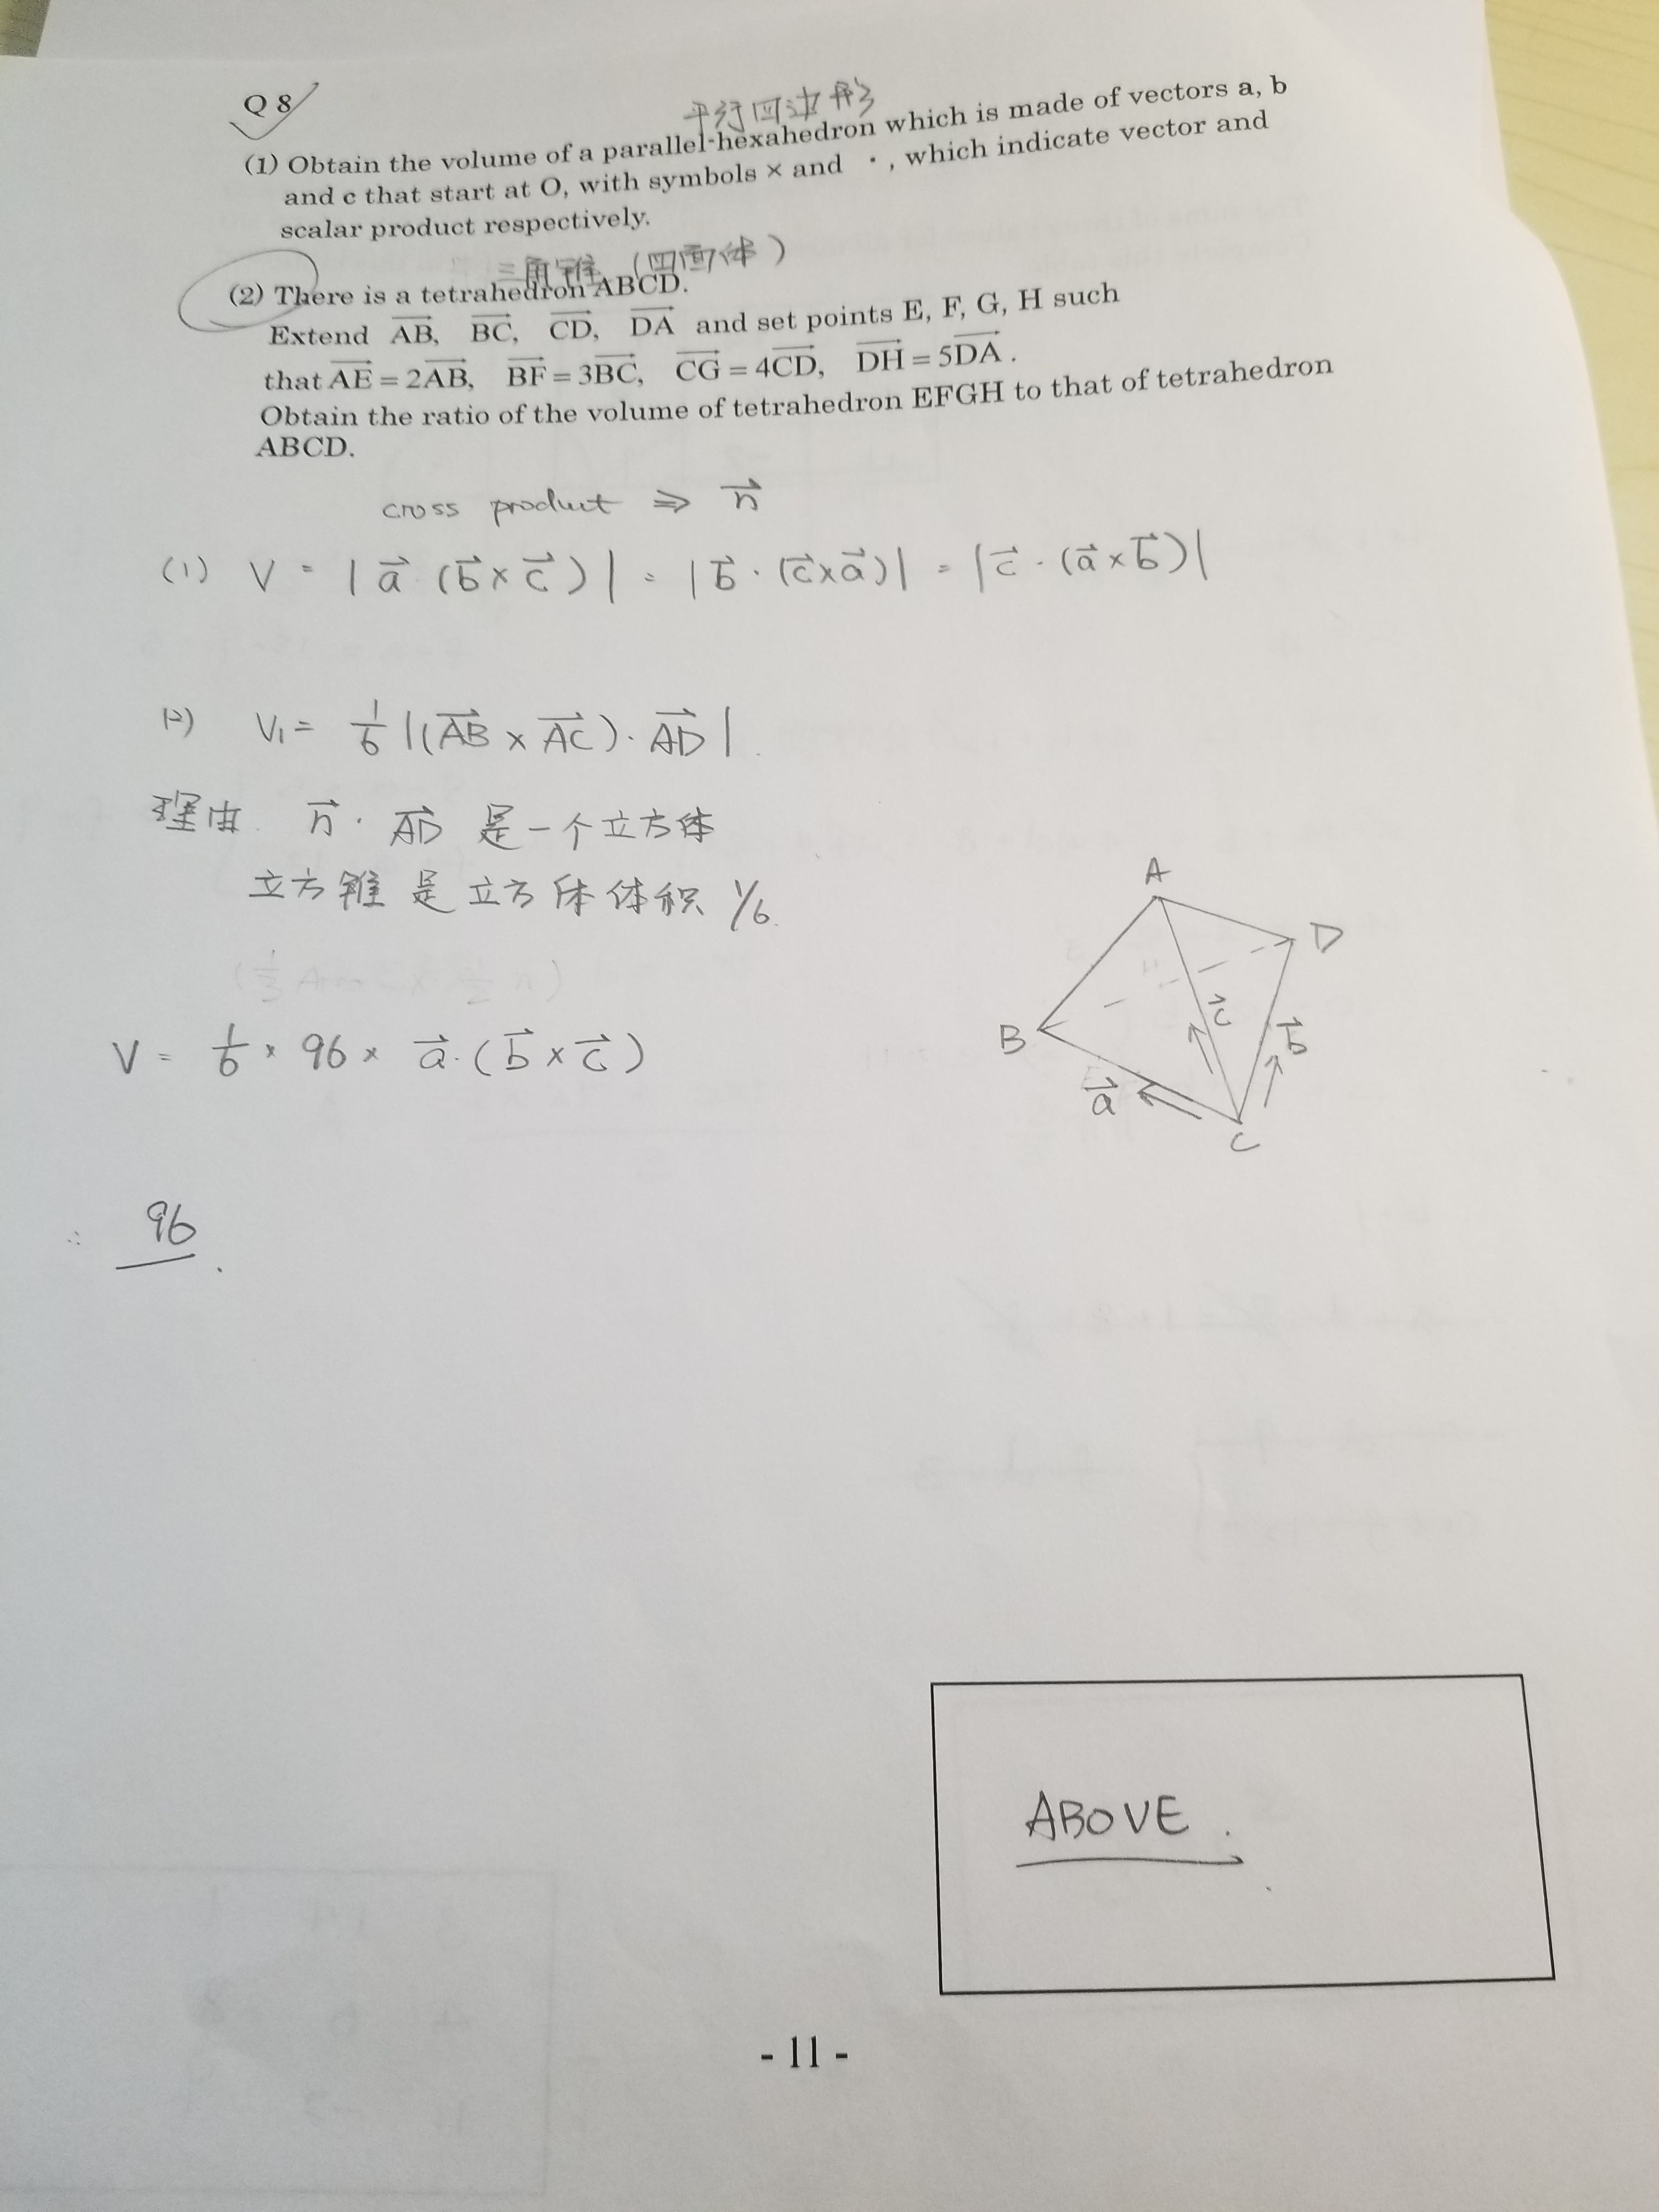 Q 8
平行四边形
(1) Obtain the volume of a parallel-hexahedron which is made of vectors a, b
and c that start at O, with symbols × and ・, which indicate vector and
scalar product respectively.
三角锥 (四面体)
(2) There is a tetrahedron ABCD.
Extend AB⃗, BC⃗, CD⃗, DA⃗ and set points E, F, G, H such
that AE⃗ = 2AB⃗, BF⃗ = 3BC⃗, CG⃗ = 4CD⃗, DH⃗ = 5DA⃗ .
Obtain the ratio of the volume of tetrahedron EFGH to that of tetrahedron
ABCD.
cross product ⇒ n⃗
(1) V = | a⃗ (b⃗ × c⃗ ) | = | b⃗ · (c⃗ × a⃗ )| = | c⃗ · (a⃗ × b⃗ )|
(2) V₁ = 1/6 |(AB⃗ × AC⃗ ) · AD⃗ |
理由 n⃗ · AD⃗ 是一个立方体
立方锥是立方体体积 1/6.
V = 1/6 × 96 × a⃗ · (b⃗ × c⃗ )
A
D
B
c⃗
b⃗
a⃗
C
∴ 96 .
ABOVE .
- 11 -